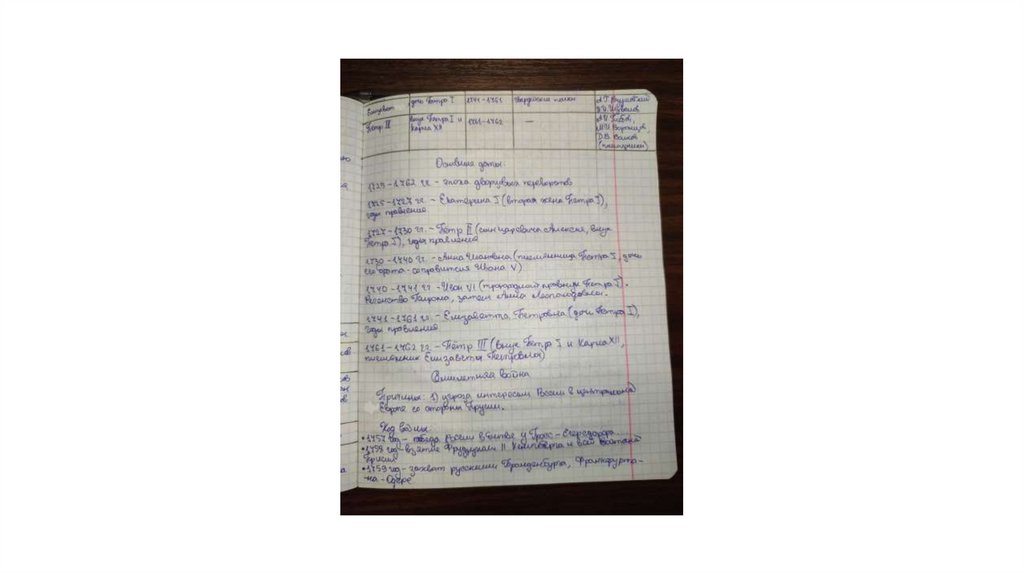 Елизавет дочь Петра I 1741-1761 Гвардейские полки А.Г. Разумовский
Шувалов
Пётр III внук Петра I и Карла XII 1761-1762 —
М.И. Воронцов,
Д.В. Волков
Основные даты:
1725-1762 гг. - эпоха дворцовых переворотов
1725-1727 гг. - Екатерина I (вторая жена Петра I),
годы правления
1727-1730 гг. - Пётр II (сын царевича Алексея, внук
Петра I), годы правления
1730-1740 гг. - Анна Ивановна (племянница Петра I, дочь
его брата-соправителя Ивана V)
1740-1741 гг. - Иван VI (правнук Петра I).
Регенство Бирона, затем Анна Леопольдовна.
1741-1761 гг. - Елизавета Петровна (дочь Петра I),
годы правления
1761-1762 гг. - Пётр III (внук Петра I и Карла XII,
племянник Елизаветы Петровны)
Семилетняя война
Причины: 1) угроза интересам России в центральной
Европе со стороны Пруссии.
Ход войны
•1757 год - победа России в битве у Гросс-Егерсдорфа
•1758 год - взятие Кёнигсберга и всей Восточной
Пруссии
•1759 год - захват русскими Бранденбурга, Франкфурта-
на-Одере